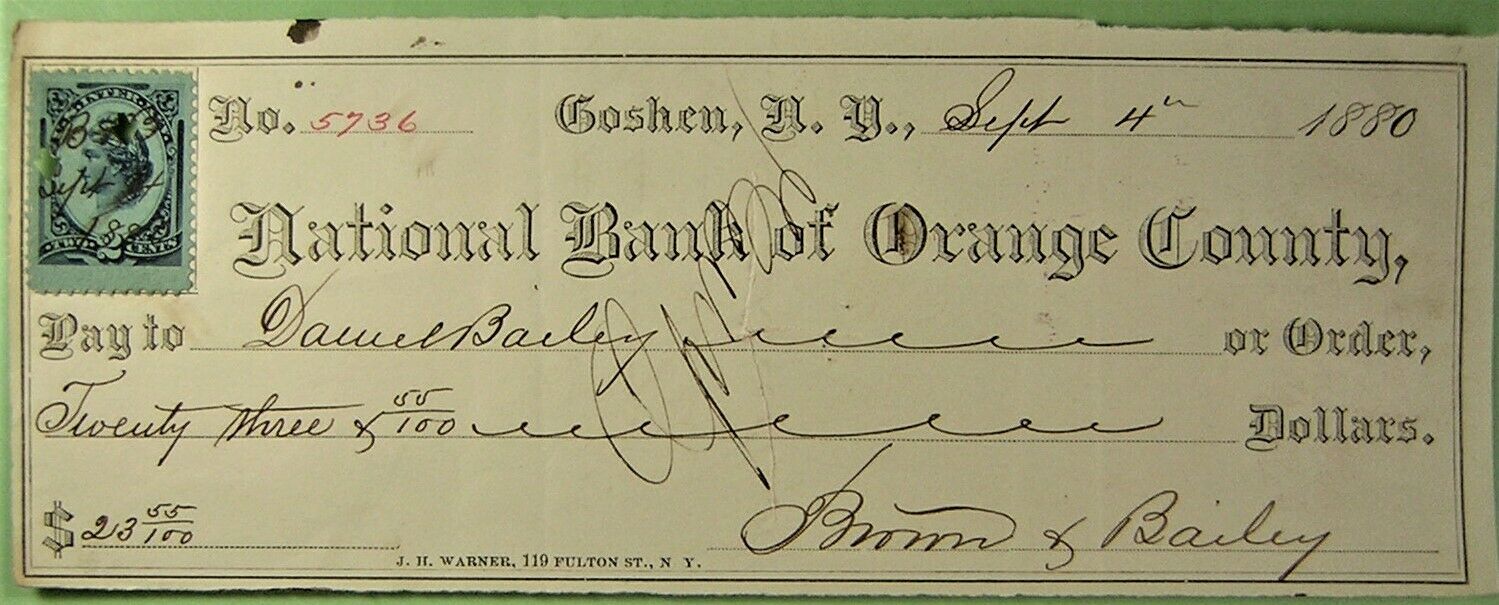 No. 5736 Goshen, N. Y., Sept 4th 1880
B & B
Sept 4
188
National Bank of Orange County,
Pay to Daniel Bailey or Order,
Twenty three & 55/100 Dollars.
$ 23 55/100
Brown & Bailey
J. H. WARNER, 119 FULTON ST., N Y.